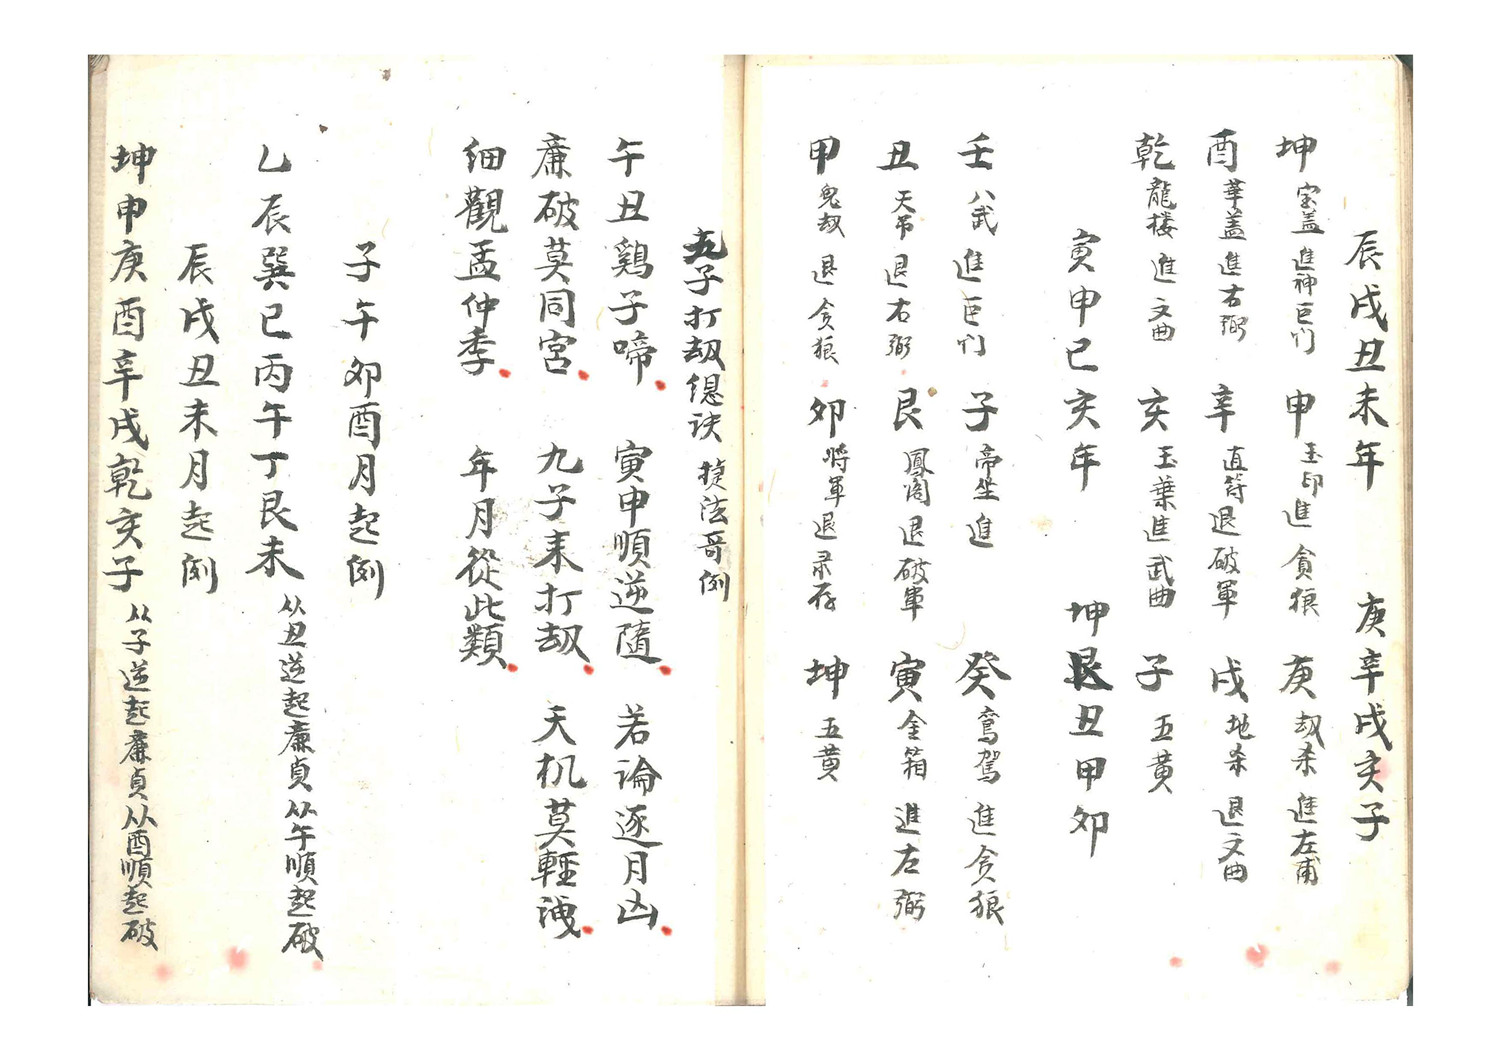 辰戌丑未年　庚辛戌亥子
坤 宝盖 進神巨门　申 玉印進 貪狼　庚 劫杀 進左甫
酉 華盖進右弼　辛 直符退破軍　戌 地杀 退文曲
乾 龍楼進文曲　亥 玉葉進武曲　子 五黄
寅申巳亥年　坤艮丑甲卯
壬 八武進巨门　子 帝坐進　癸 鸾駕進貪狼
丑 天吊退右弼　艮 鳳阁退破軍　寅 金箱進左弼
甲 鬼劫退貪狼　卯 將軍退录存　坤 五黄
九子打劫縂诀 捷法哥例
午丑鷄子啼　寅申順逆隨　若論逐月凶
廉破莫同宮　九子耒打劫　天机莫輕洩
细觀孟仲季　年月從此類
子午卯酉月起例
乙辰巽巳丙午丁艮未 从丑逆起廉貞从午順起破
辰戌丑未月起例
坤申庚酉辛戌乾亥子 从子逆起廉貞从酉順起破